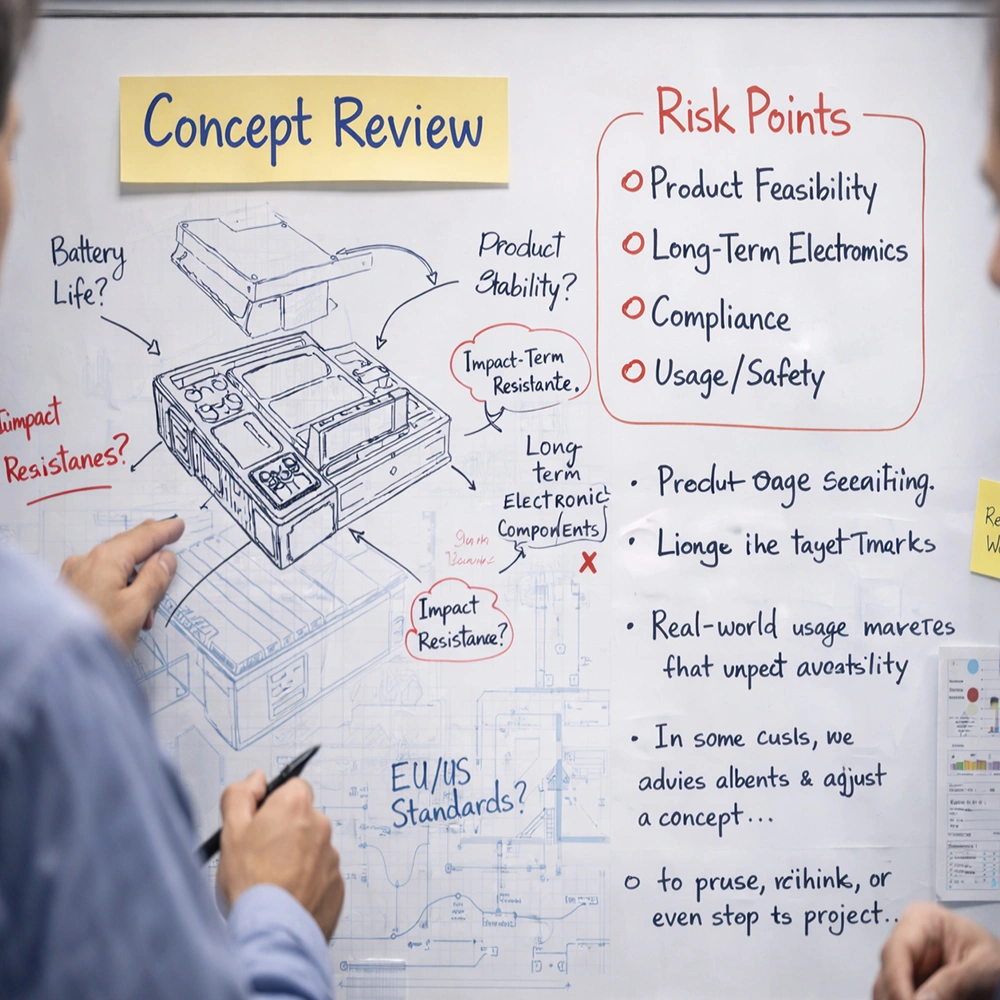 Concept Review
Risk Points
Product Feasibility
Long-Term Electromics
Compliance
Usage/Safety
Battery
Life?
Product
Stability?
Impact-Term
Resistante.
Resistanes?
Long
term
Electronic
Components
Impact
Resistance?
EU/US
Standards?
• Produt Oage Seeaitiing.
• Lionge ihe tayet Tmarks
• Real-world usage mavetes
fhat unpect avoatslity
• In some cusls, we
advies albents & aðjust
a concept...
to pruse, rcihink, or
even stop ts project..
Re
W